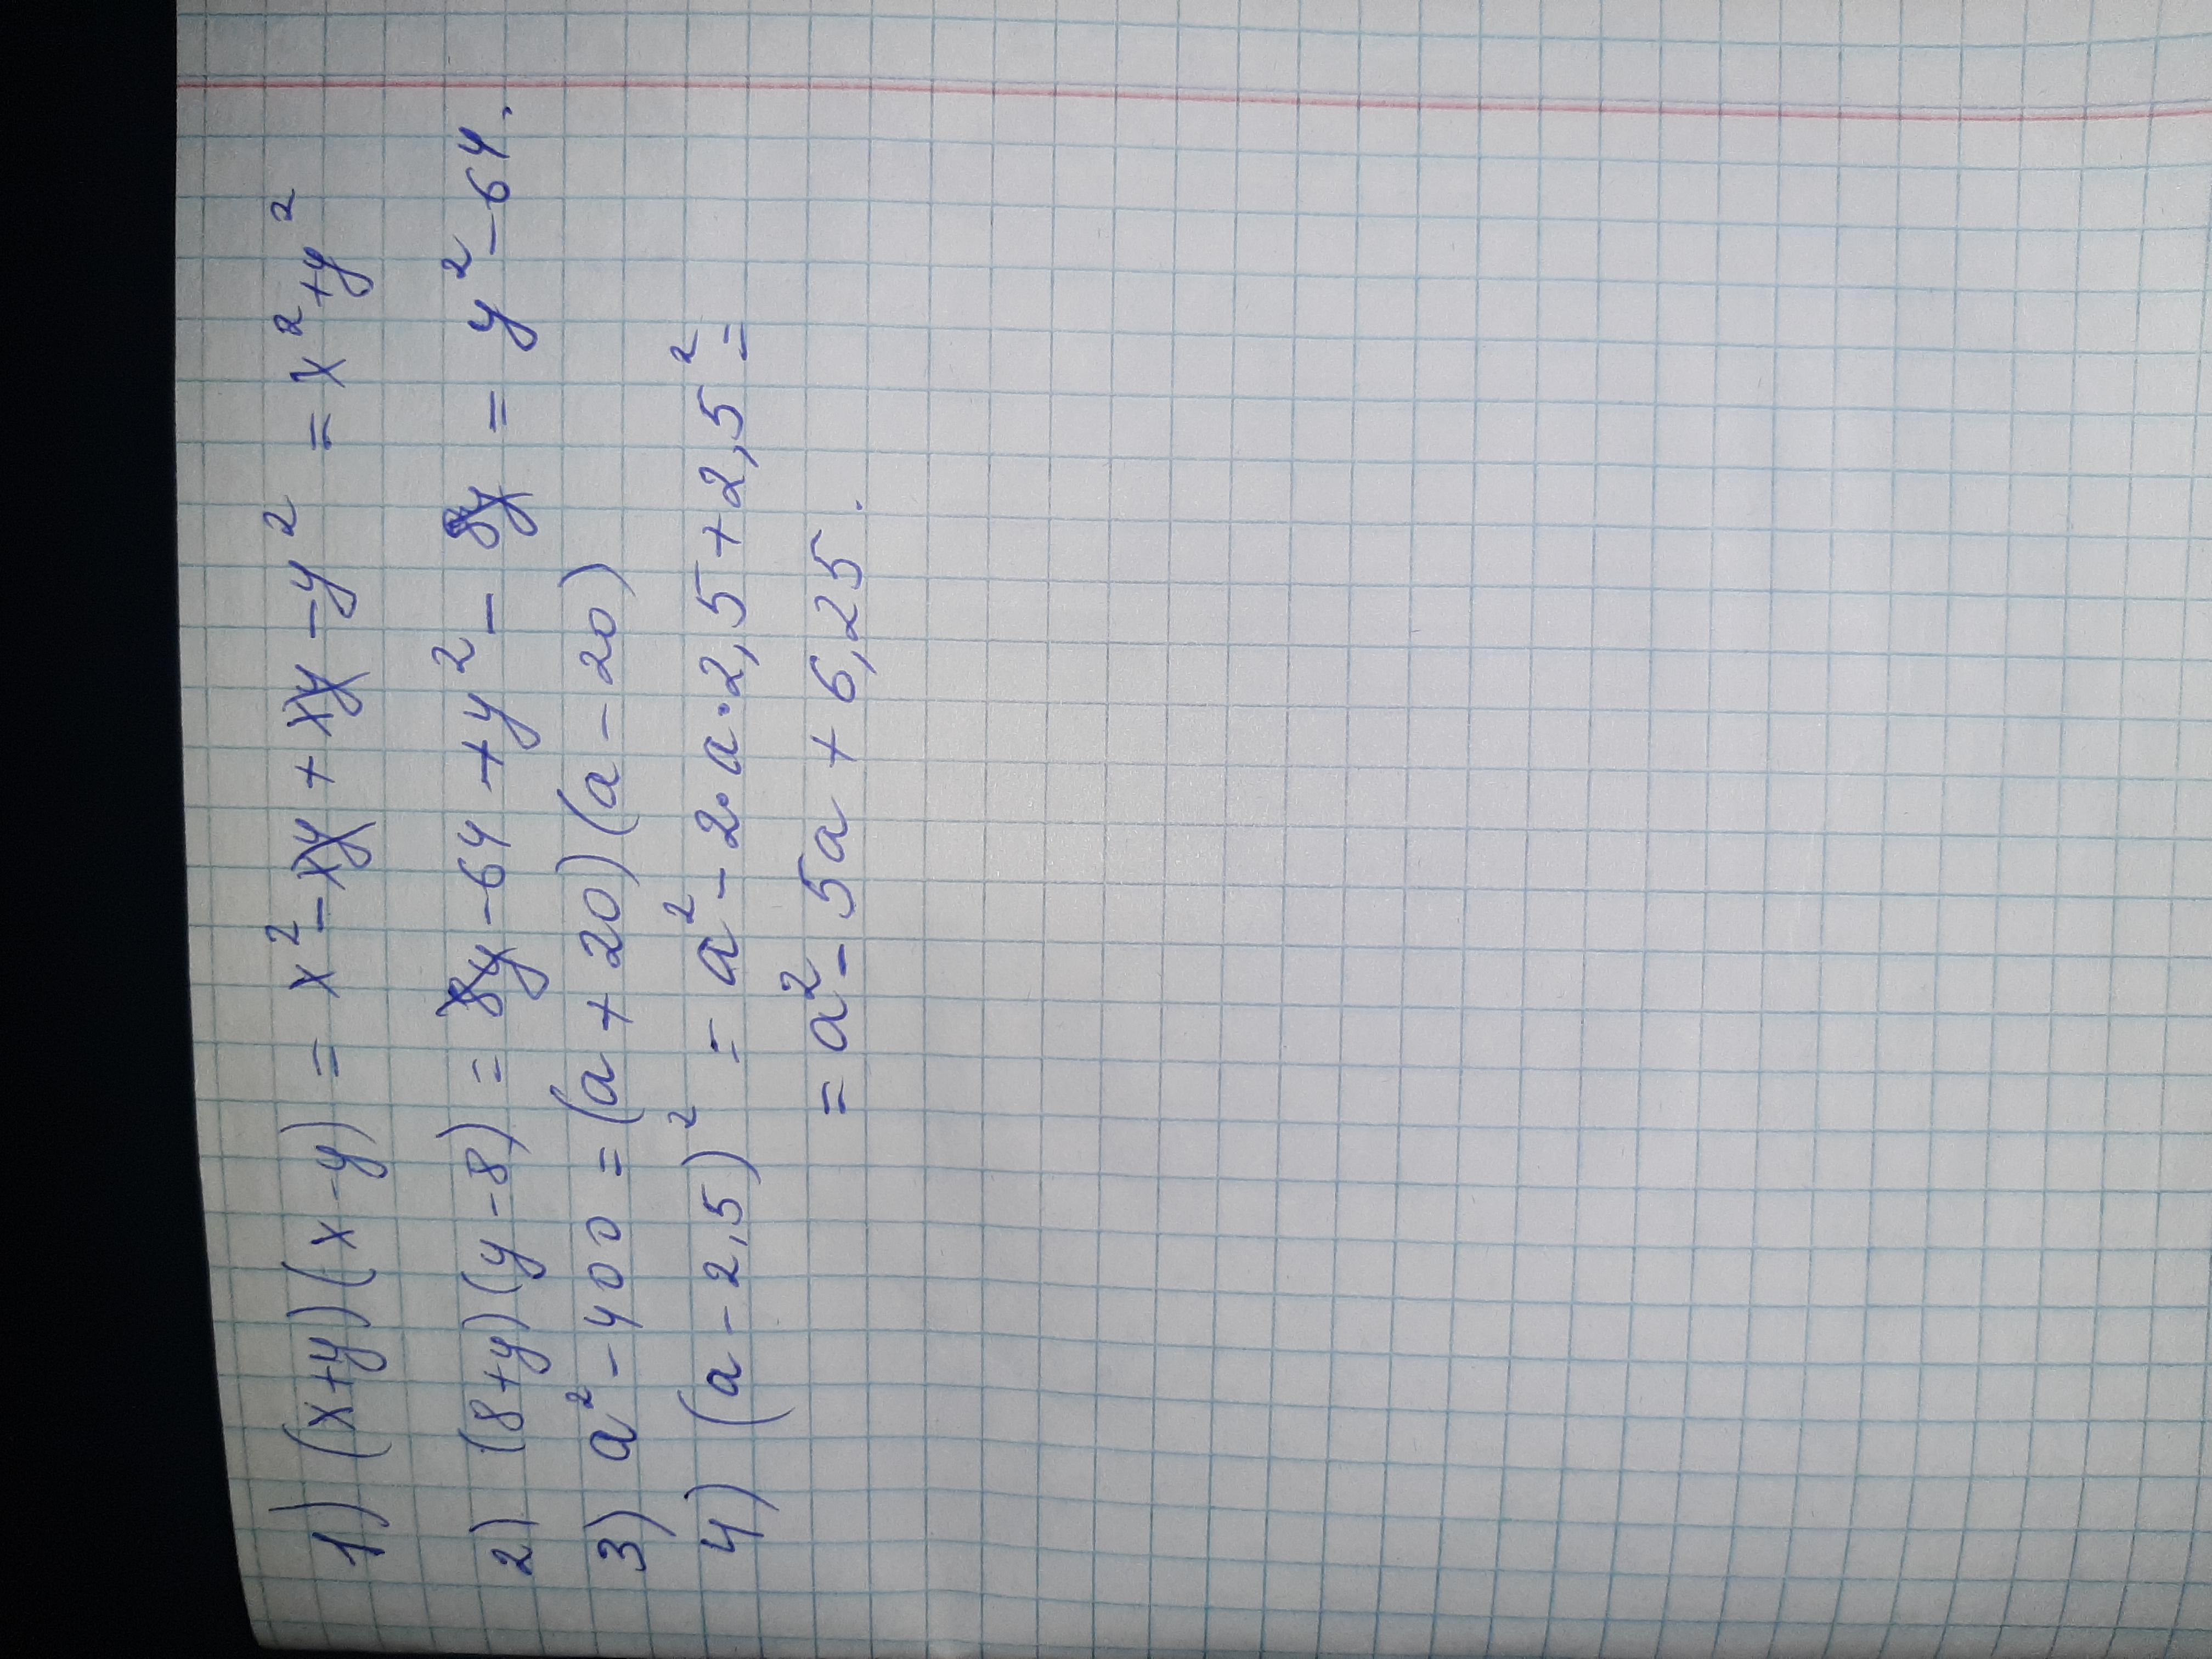 1) (x+y)(x-y) = x²-xy+xy-y² = x²+y²
2) (8+y)(y-8) = 8y-64+y²-8y = y²-64.
3) a²-400=(a+20)(a-20)
4) (a-2,5)² = a²-2·a·2,5+2,5²=
= a²-5a+6,25.